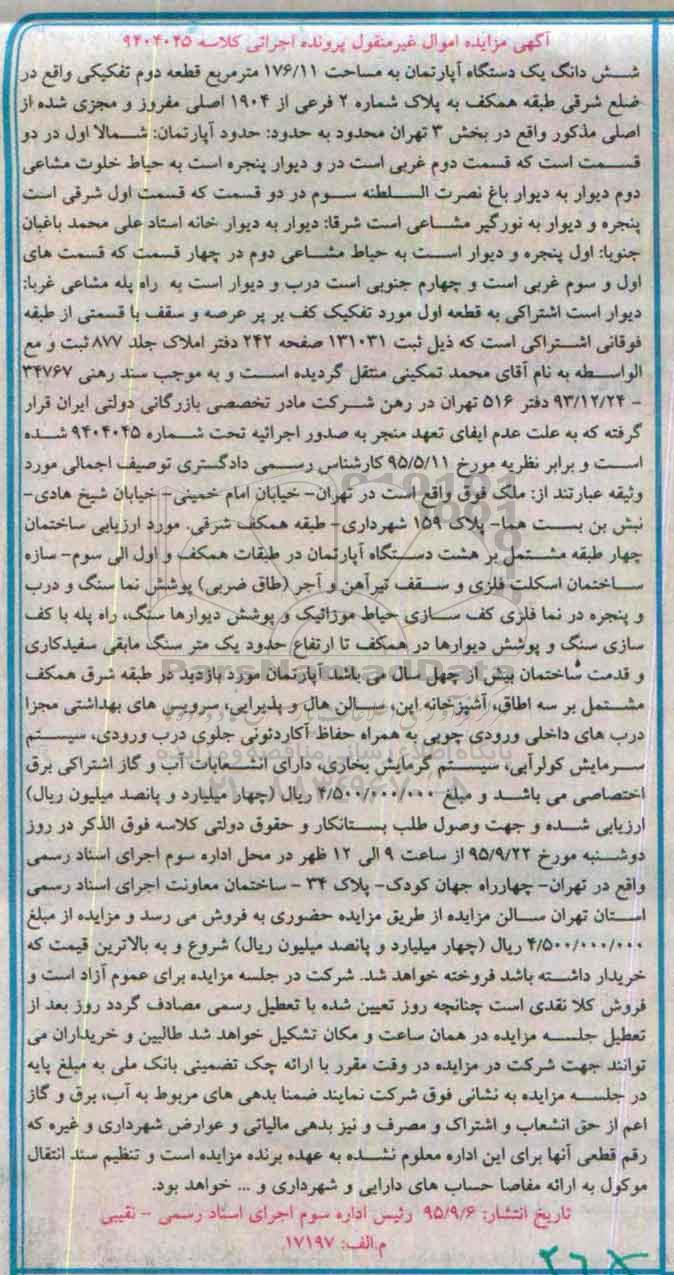 آگهی مزایده اموال غیرمنقول پرونده اجرائی کلاسه ۹۴۰۴۰۴۵
شـــش دانگ یک دستگاه آپارتمان به مساحت ۱۷۶/۱۱ مترمربع قطعه دوم تفکیکی واقع در
ضلع شرقی طبقه همکف به پلاک شماره ۲ فرعی از ۱۹۰۴ اصلی مفروز و مجزی شده از
اصلی مذکور واقع در بخش ۳ تهران محدود به حدود: حدود آپارتمان: شـــمالا اول در دو
قســـمت است که قسمت دوم غربی است در و دیوار پنجره است به حیاط خلوت مشاعی
دوم دیوار به دیوار باغ نصرت الـــلطنه ســـوم در دو قسمت که قسمت اول شرقی است
پنجره و دیوار به نورگیر مشـــاعی است شرقا: دیوار به دیوار خانه استاد علی محمد باغبان
جنوبا: اول پنجره و دیوار اســـت به حیاط مشـــاعی دوم در چهار قسمت که قسمت های
اول و سوم غربی است و چهارم جنوبی است درب و دیوار است به راه پله مشاعی غربا:
دیوار است اشتراکی به قطعه اول مورد تفکیک کف بر پر عرصه و سقف با قسمتی از طبقه
فوقانی اشـــتراکی است که ذیل ثبت ۱۳۱۰۳۱ صفحه ۲۴۲ دفتر املاک جلد ۸۷۷ ثبت و مع
الواســـطه به نام آقای محمد تمکینی منتقل گردیده اســـت و به موجب سند رهنی ۳۴۷۶۷
- ۹۳/۱۲/۲۴ دفتر ۵۱۶ تهران در رهن شـــرکت مادر تخصصی بازرگانی دولتی ایران قرار
گرفته که به علت عدم ایفای تعهد منجر به صدور اجرائیه تحت شـــماره ۹۴۰۴۰۴۵ شـــده
اســـت و برابر نظریه مورخ ۹۵/۵/۱۱ کارشناس رســـمی دادگستری توصیف اجمالی مورد
وثیقه عبارتند از: ملک فوق واقع است در تهران- خیابان امام خمینی- خیابان شیخ هادی-
نبش بن بســـت هما- پلاک ۱۵۹ شهرداری- طبقه همکف شرقی. مورد ارزیابی ساختمان
چهار طبقه مشـــتمل بر هشت دســـتگاه آپارتمان در طبقات همکف و اول الی سوم- سازه
ســـاختمان اسکلت فلزی و ســـقف تیرآهن و آجر (طاق ضربی) پوشش نما سنگ و درب
و پنجره در نما فلزی کف ســـازی حیاط موزائیک و پوشش دیوارها سنگ، راه پله با کف
سازی سنگ و پوشش دیوارها در همکف تا ارتفاع حدود یک متر سنگ مابقی سفیدکاری
و قدمت ساختمان بیش از چهل سال می باشد آپارتمان مورد بازدید در طبقه شرق همکف
مشـــتمل بر سه اطاق، آشپزخانه اپن، ســـالن هال و پذیرایی، سرویس های بهداشتی مجزا
درب های داخلی ورودی چوبی به همراه حفاظ آکاردئونی جلوی درب ورودی، سیســـتم
ســـرمایش کولرآبی، سیســـتم گرمایش بخاری، دارای انشـــعابات آب و گاز اشتراکی برق
اختصاصی می باشـــد و مبلغ ۴/۵۰۰/۰۰۰/۰۰۰ ریال (چهار میلیارد و پانصد میلیون ریال)
ارزیابی شـــده و جهت وصول طلب بســـتانکار و حقوق دولتی کلاسه فوق الذکر در روز
دوشـــنبه مورخ ۹۵/۹/۲۲ از ساعت ۹ الی ۱۲ ظهر در محل اداره سوم اجرای اسناد رسمی
واقع در تهران- چهارراه جهان کودک- پلاک ۳۴ - ساختمان معاونت اجرای اسناد رسمی
اســـتان تهران ســـالن مزایده از طریق مزایده حضوری به فروش می رسد و مزایده از مبلغ
۴/۵۰۰/۰۰۰/۰۰۰ ریال (چهار میلیارد و پانصد میلیون ریال) شروع و به بالاترین قیمت که
خریدار داشـــته باشد فروخته خواهد شد. شرکت در جلسه مزایده برای عموم آزاد است و
فروش کلا نقدی است چنانچه روز تعیین شده با تعطیل رسمی مصادف گردد روز بعد از
تعطیل جلســـه مزایده در همان ساعت و مکان تشکیل خواهد شد طالبین و خریداران می
توانند جهت شرکت در مزایده در وقت مقرر با ارائه چک تضمینی بانک ملی به مبلغ پایه
در جلســـه مزایده به نشانی فوق شرکت نمایند ضمنا بدهی های مربوط به آب، برق و گاز
اعم از حق انشعاب و اشتراک و مصرف و نیز بدهی مالیاتی و عوارض شهرداری و غیره که
رقم قطعی آنها برای این اداره معلوم نشـــده به عهده برنده مزایده است و تنظیم سند انتقال
موکول به ارائه مفاصا حساب های دارایی و شهرداری و ... خواهد بود.
تاریخ انتشار: ۹۵/۹/۶ رئیس اداره سوم اجرای اسناد رسمی - نقیبی
م.الف: ۱۷۱۹۷
ParsNamadData